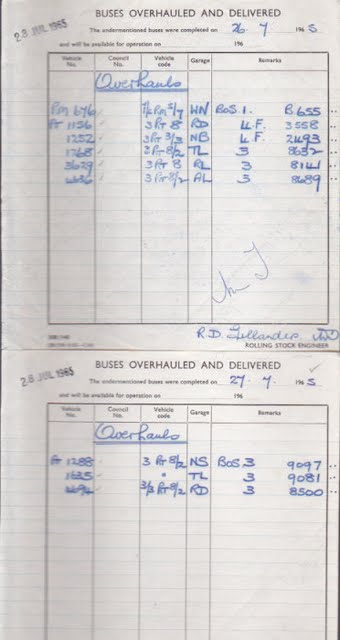 28 JUL 1965
BUSES OVERHAULED AND DELIVERED
The undermentioned buses were completed on 26. 7 196 5
and will be available for operation on 196
Vehicle No. Council No. Vehicle code Garage Remarks
Overhauls
RM 676 RM 5/7 WN BOS 1. B655
RT 1156 3 RT 8 RD L.F. 3558
1252 3 RT 3/3 NB L.F. 2493
1768 3 RT 8/2 TL 3 8632
3629 3 RT 8 RL 3 8141
3 RT 8/2 AL 3 8689
R.D.
ROLLING STOCK ENGINEER
28 JUL 1965
BUSES OVERHAULED AND DELIVERED
The undermentioned buses were completed on 27. 7. 196 5
and will be available for operation on 196
Vehicle No. Council No. Vehicle code Garage Remarks
Overhauls
RT 1288 3 RT 8/2 NS BOS 3 9097
1635 " TL 3 9081
3/3 RT 8/2 RD 3 8500